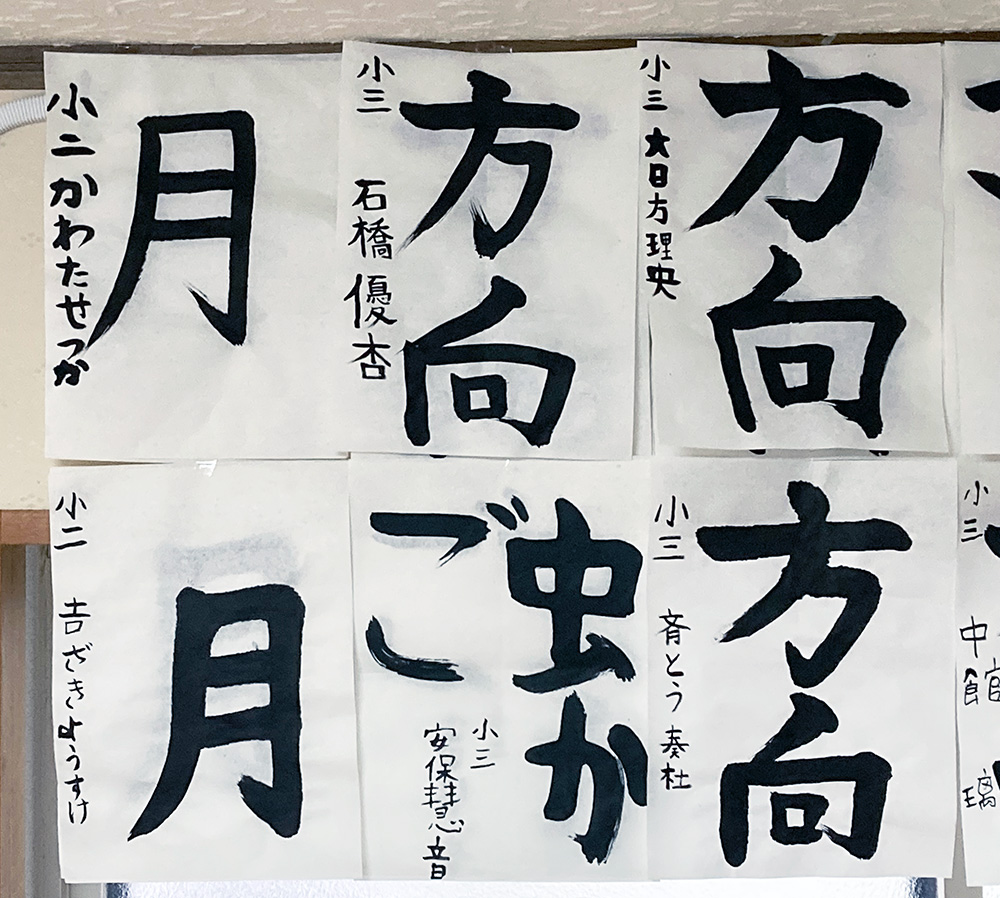 月
小二 かわたせつか
方向
小三 石橋優杏
方向
小三 大日方理央
月
小二 吉ざきようすけ
虫か
ご
小三
安保慧音
方向
小三 斉とう奏杜
小三 中館 璃